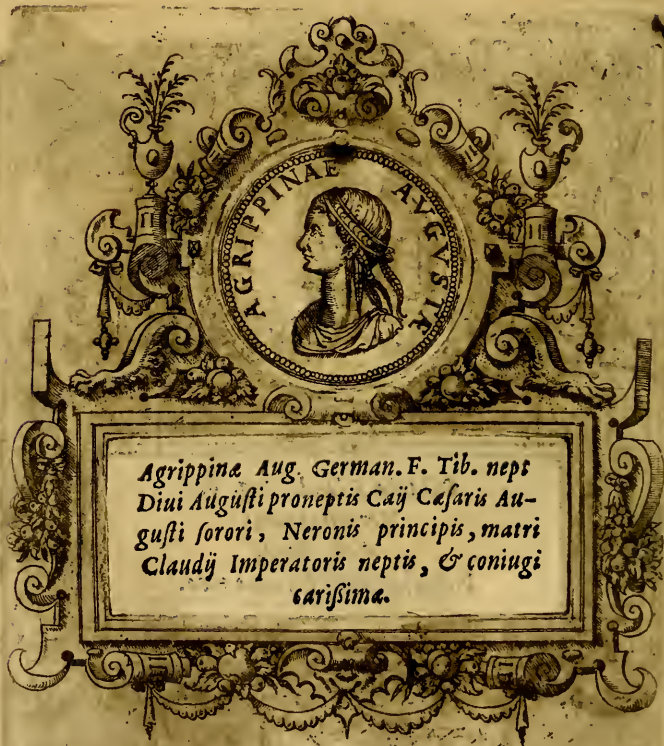 AGRIPPINAE AVGVSTÆ
Agrippinæ Aug. German. F. Tib. nept
Diui Auguſti proneptis Caij Cæſaris Au-
guſti ſorori, Neronis principis, matri
Claudij Imperatoris neptis, & coniugi
cariſsimæ.